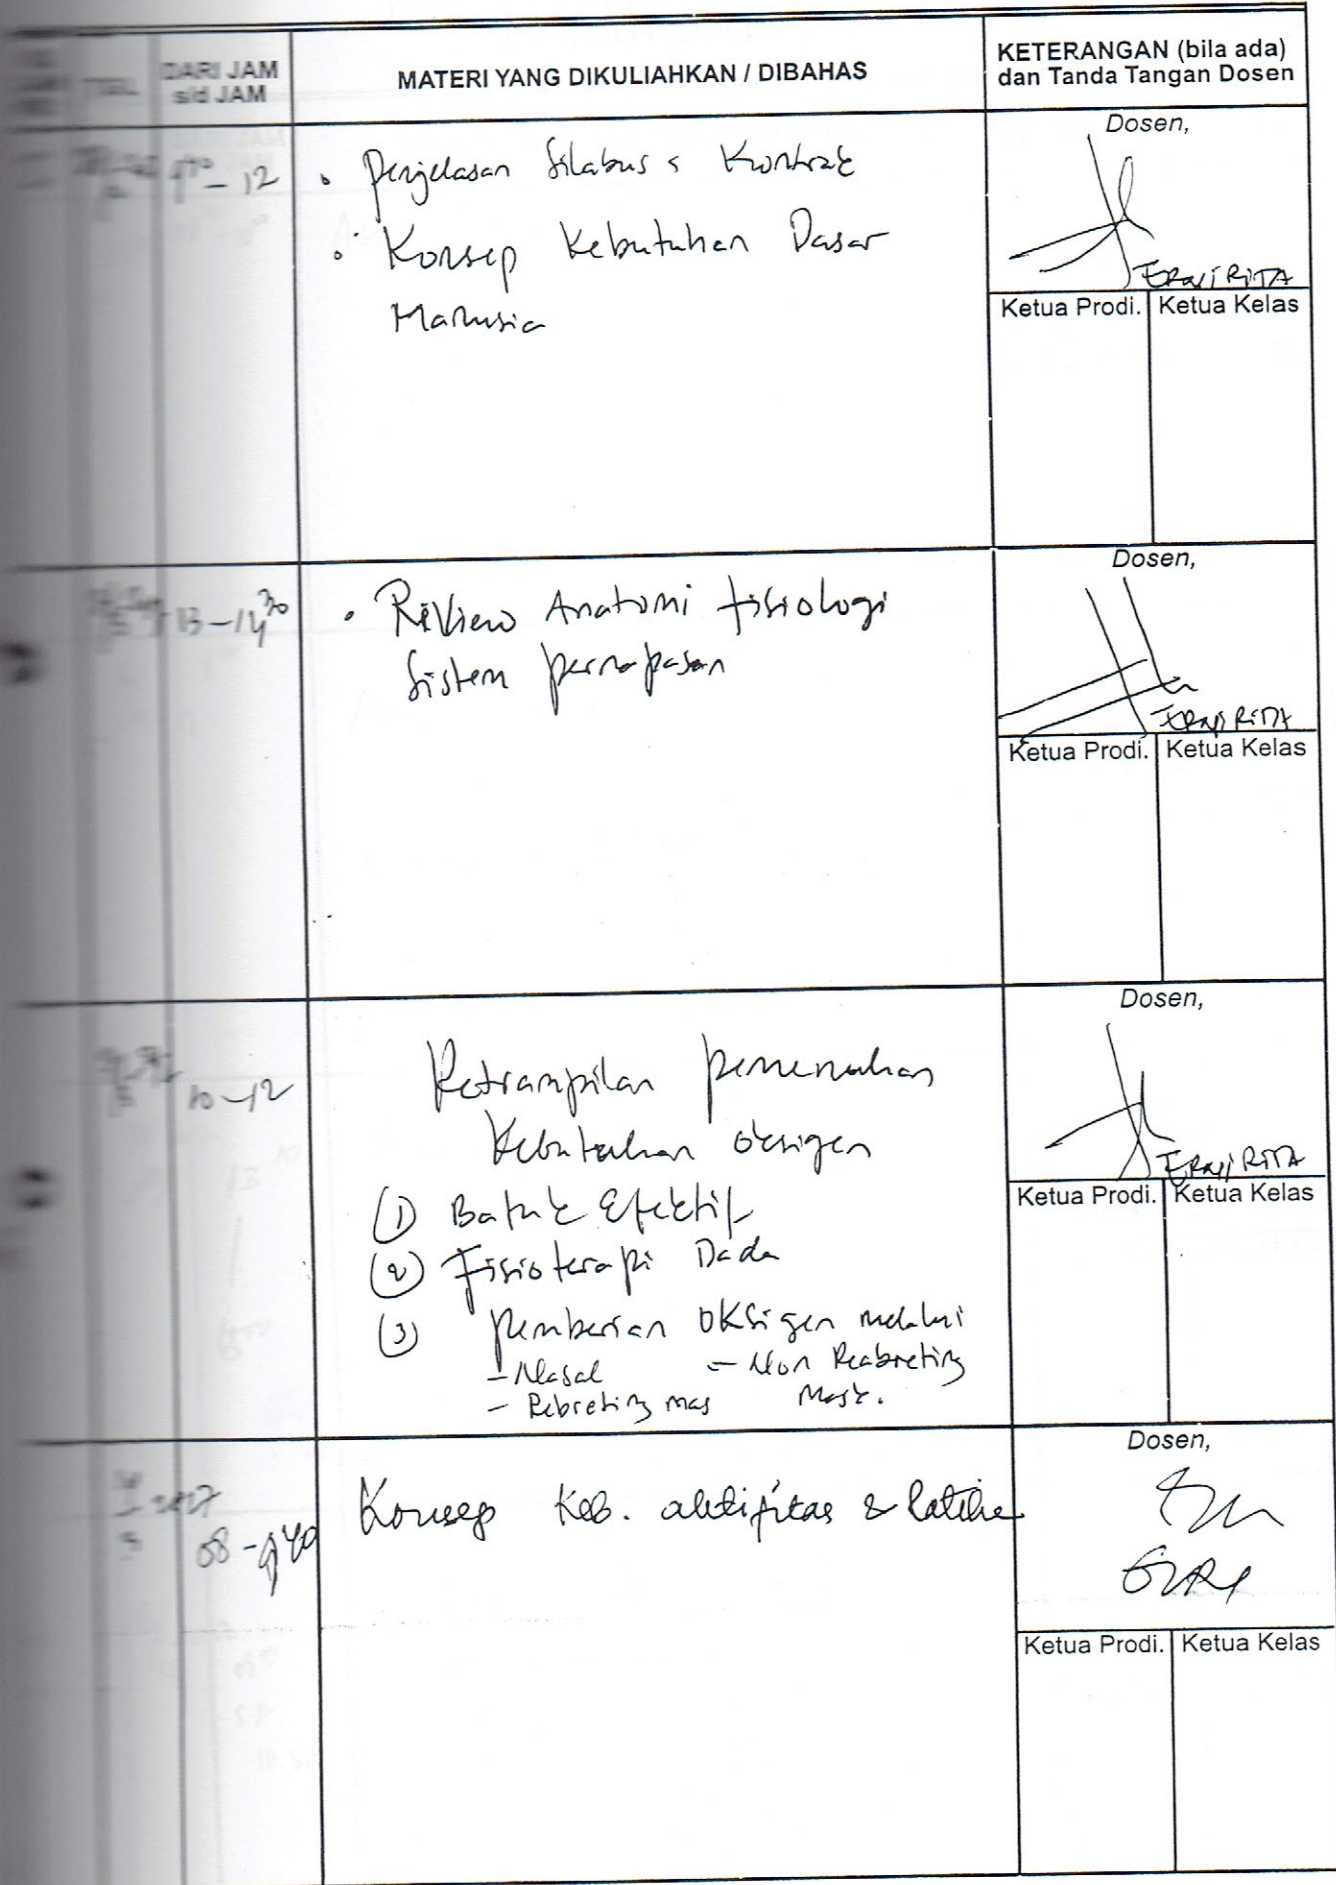 TGL.
DARI JAM
s/d JAM
MATERI YANG DIKULIAHKAN / DIBAHAS
KETERANGAN (bila ada)
dan Tanda Tangan Dosen
- 12
• Penjelasan Silabus & Kontrak
• Konsep Kebutuhan Dasar
Manusia
Dosen,
Ketua Prodi.
Ketua Kelas
13 - 14 30
• Review Anatomi fisiologi
Sistem pernapasan
Dosen,
Ketua Prodi.
Ketua Kelas
10 - 12
Ketrampilan pemenuhan
Kebutuhan oksigen
(1) Batuk Efektif
(2) Fisioterapi Dada
(3) pemberian oksigen melalui
- Nasal
- Non Reabreting
- Rebreting mas
Mask.
Dosen,
Ketua Prodi.
Ketua Kelas
08 - 9 40
Konsep Keb. aktifitas &
Dosen,
Ketua Prodi.
Ketua Kelas